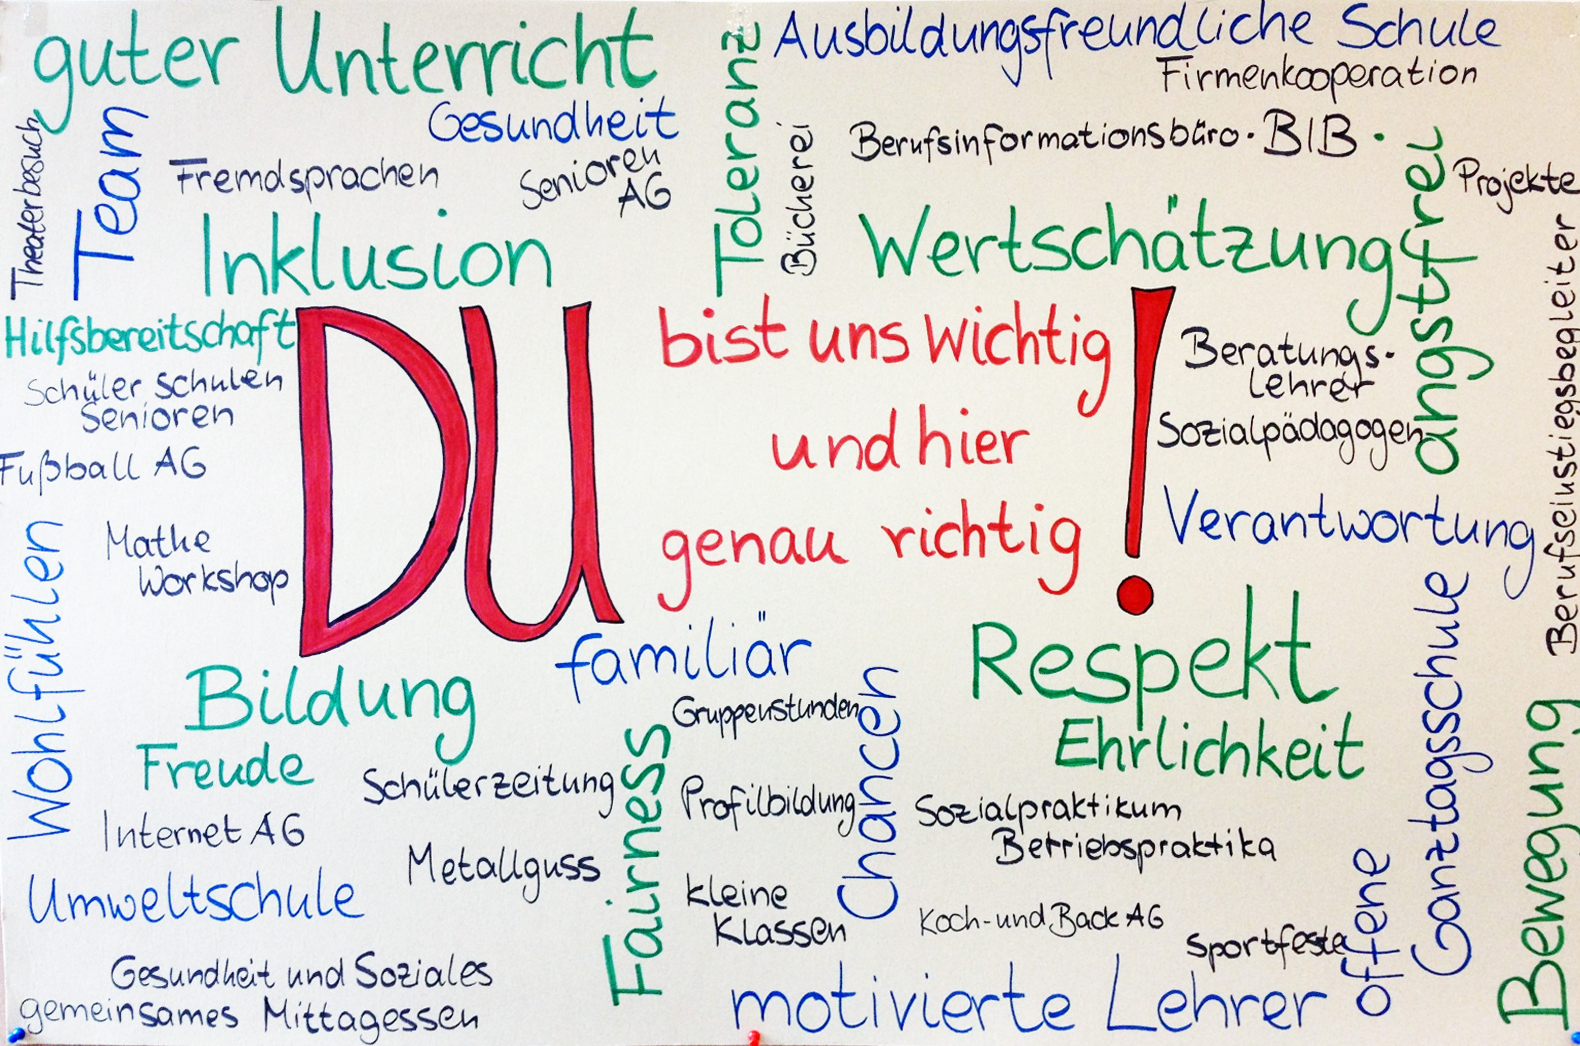 guter Unterricht
Toleranz
Ausbildungsfreundliche Schule
Firmenkooperation
Theaterbesuch
Team
Gesundheit
Fremdsprachen
Senioren
AG
Bücherei
Berufsinformationsbüro · BIB ·
angstfrei
Projekte
Inklusion
Wertschätzung
Berufseinstiegsbegleiter
Hilfsbereitschaft
Schüler schulen
Senioren
Fußball AG
Mathe
Workshop
DU
bist uns wichtig
und hier
genau richtig
!
Beratungs-
lehrer
Sozialpädagogen
Verantwortung
Wohlfühlen
Bildung
Freude
familiär
Gruppenstunden
Respekt
Ehrlichkeit
Chancen
Ganztagsschule
Bewegung
Schülerzeitung
Fairness
Profilbildung
Sozialpraktikum
Betriebspraktika
Internet AG
Metallguss
Umweltschule
kleine
Klassen
Koch-und Back AG
Sportfeste
offene
Gesundheit und Soziales
gemeinsames Mittagessen
motivierte Lehrer